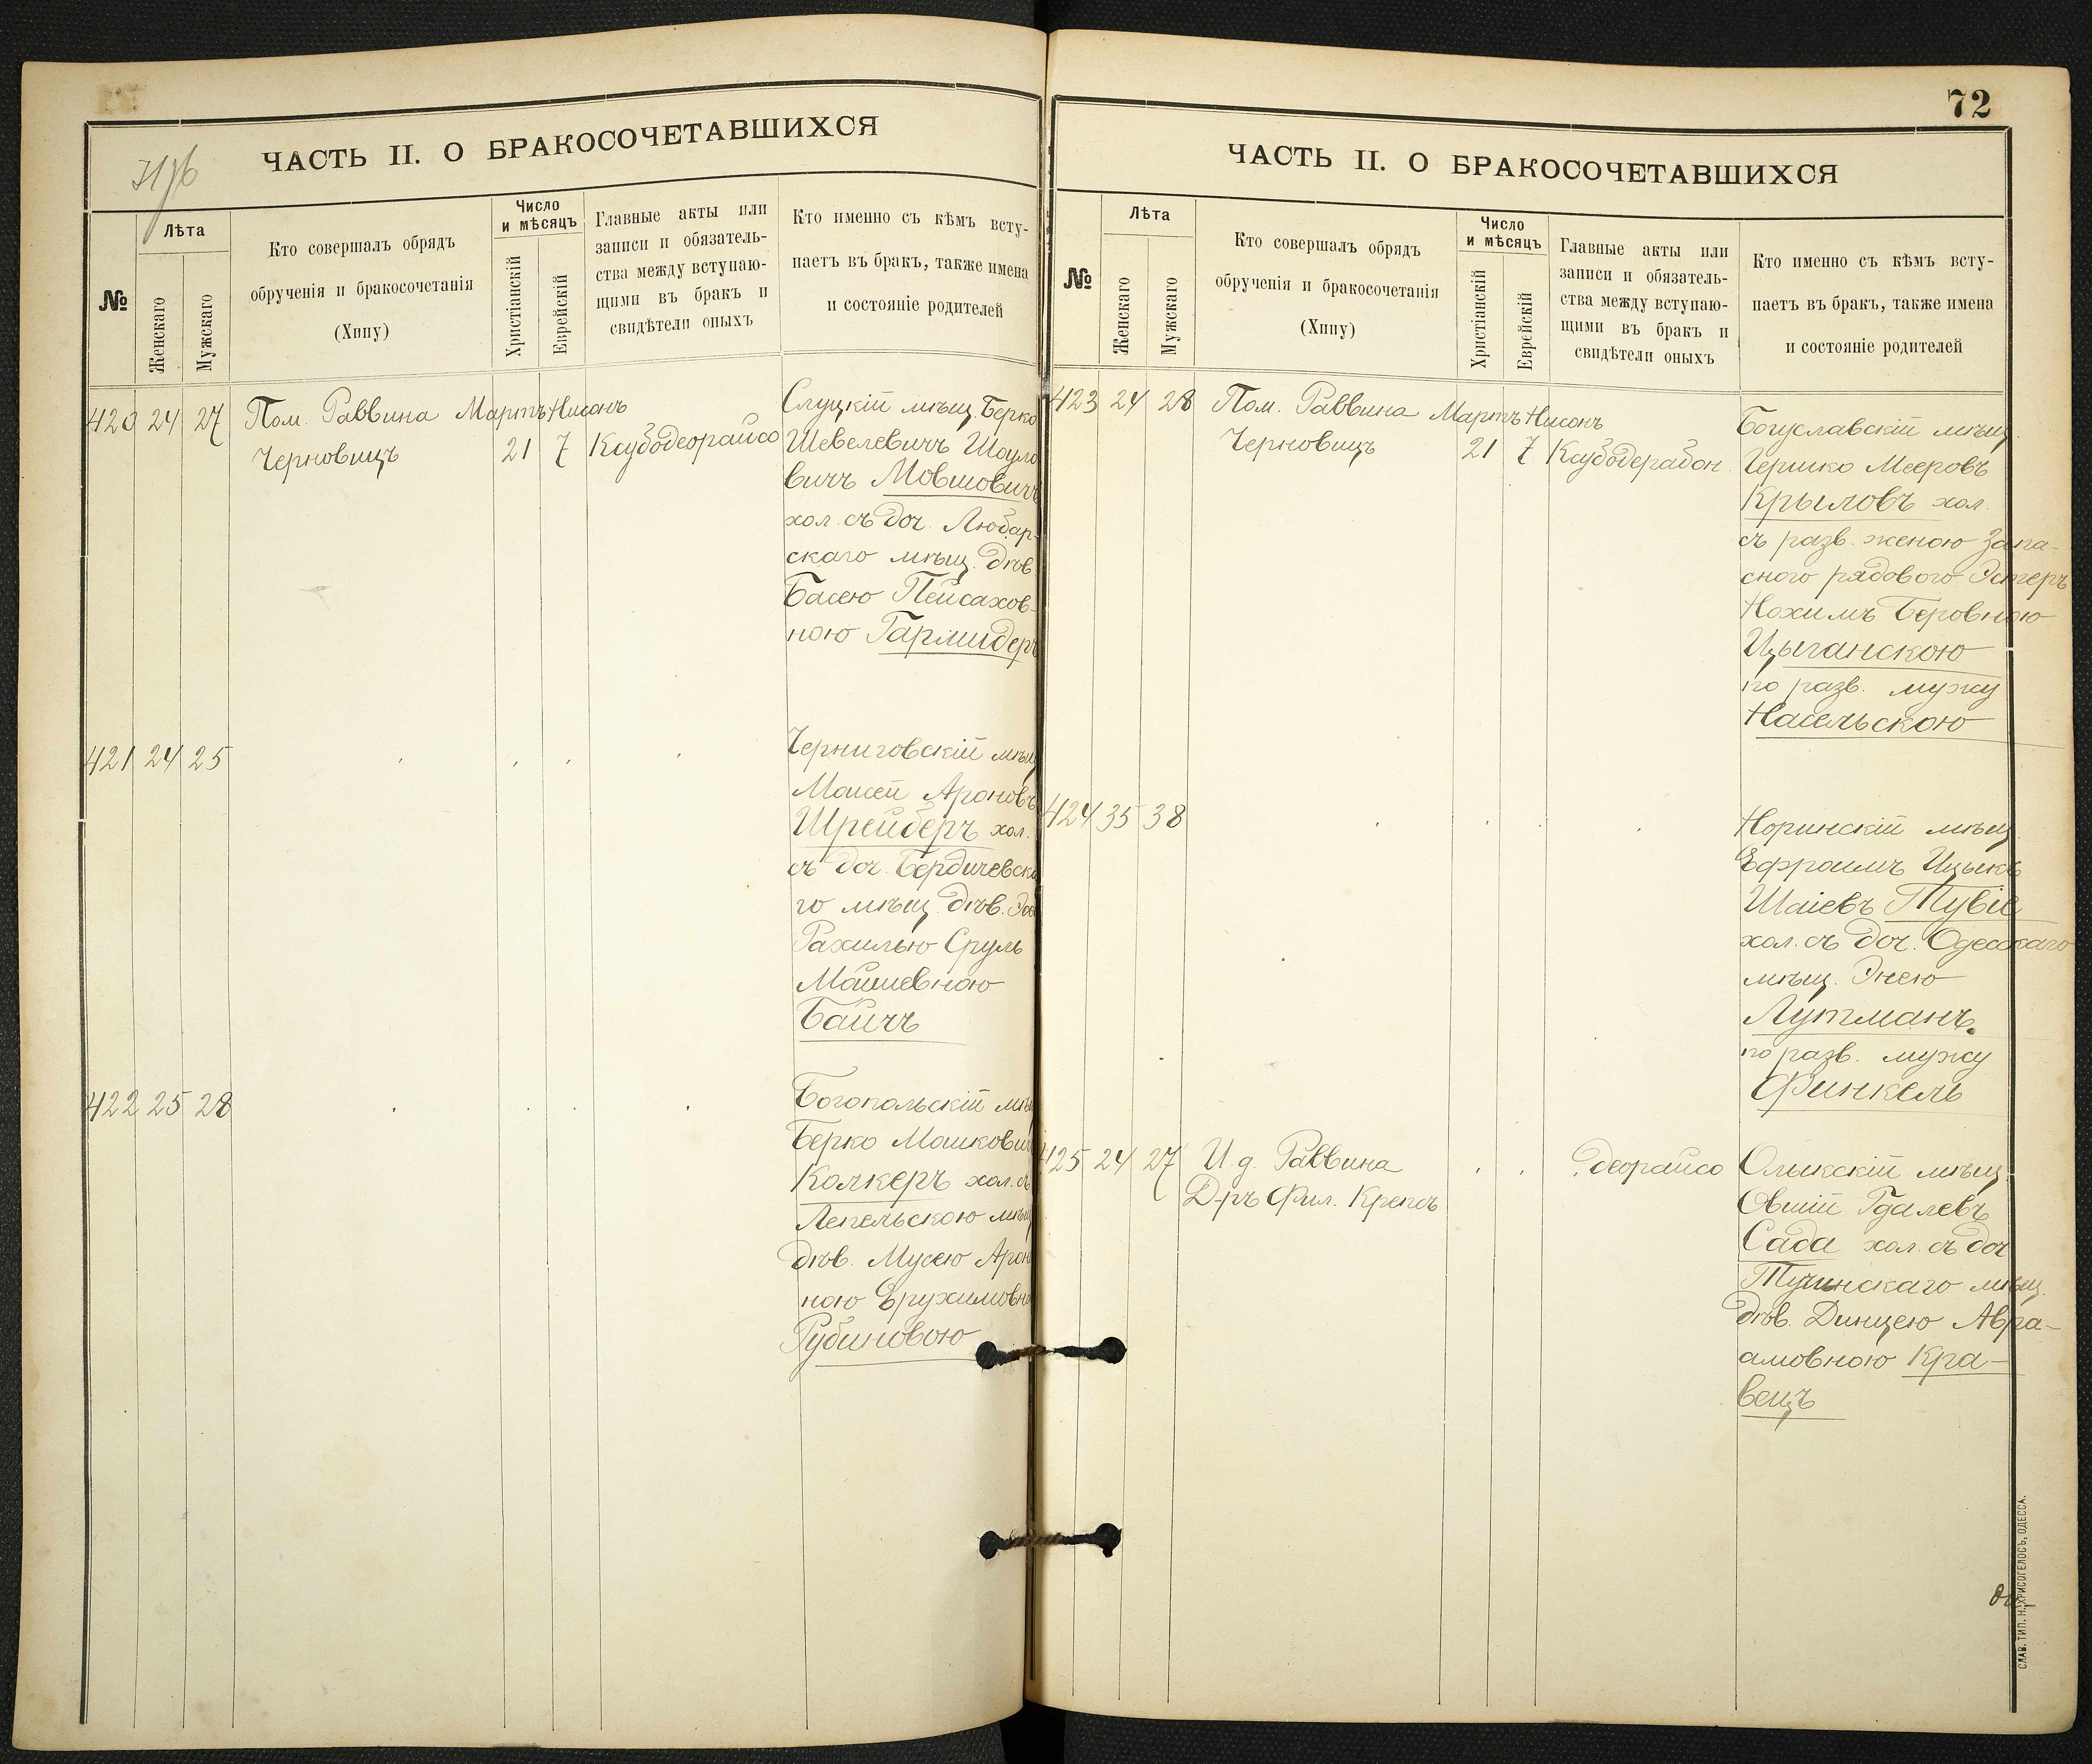 71/б
ЧАСТЬ II. О БРАКОСОЧЕТАВШИХСЯ
№
Лѣта
Женскаго
Мужскаго
Кто совершалъ обрядъ
обрученія и бракосочетанія
(Хипу)
Число
и мѣсяцъ
Христіанскій
Еврейскій
Главные акты или
записи и обязатель-
ства между вступаю-
щими въ бракъ и
свидѣтели оныхъ
Кто именно съ кѣмъ всту-
паетъ въ бракъ, также имена
и состояніе родителей
420 24 27 Пом. Раввина Мартъ Нисонъ
Черновицъ 21 7 Каубодеорайсо
Слуцкій мѣщ. Берко
Шевелевичъ Шоуло
вичъ Мовшовичъ
хол. съ доч. Любар-
скаго мѣщ. дѣв.
Басею Пейсахов-
ною Гармидеръ
421 24 25
Черниговскій мѣщ
Моисей Ароновъ
Шрейберъ хол.
съ доч. Бердичевска
го мѣщ. дѣв.
Рахилью Сруль
Мошевною
Байчъ
422 25 28
Богопольскій мѣщ
Берко Мошкович
Колкеръ хол. съ
Лепельскою мѣщ
дѣв. Мусею Арон
ною Ерухимовно
Рубиновою
72
ЧАСТЬ II. О БРАКОСОЧЕТАВШИХСЯ
№
Лѣта
Женскаго
Мужскаго
Кто совершалъ обрядъ
обрученія и бракосочетанія
(Хипу)
Число
и мѣсяцъ
Христіанскій
Еврейскій
Главные акты или
записи и обязатель-
ства между вступаю-
щими въ бракъ и
свидѣтели оныхъ
Кто именно съ кѣмъ всту-
паетъ въ бракъ, также имена
и состояніе родителей
423 24 28 Пом. Раввина Мартъ Нисонъ
Черновицъ 21 7 Каубодерабон.
Богуславскій мѣщ.
Гершко Мееровъ
Крыловъ хол.
съ разв. женою Запа-
сного рядового Эстеръ
Нохимъ Беровною
Цыганскою
по разв. мужу
Насельскою
424 35 38
Норинскій мѣщ.
Ефроимъ Ицыкъ
Шаіевъ Тувіе
хол. съ доч. Одесскаго
мѣщ. Энею
Лутманъ
по разв. мужу
Финкель
425 24 27 И. д. Раввина
Д-ръ Фил. Крепсъ
деорайсо
Олыкскій мѣщ.
Овшій Гдалевъ
Сада хол. съ доч
Тучинскаго мѣщ.
дѣв. Динцею Авра-
амовною Кра-
вецъ
СЛАВ. ТИП. Н. ХРИСОГЕЛОСЪ, ОДЕССА.